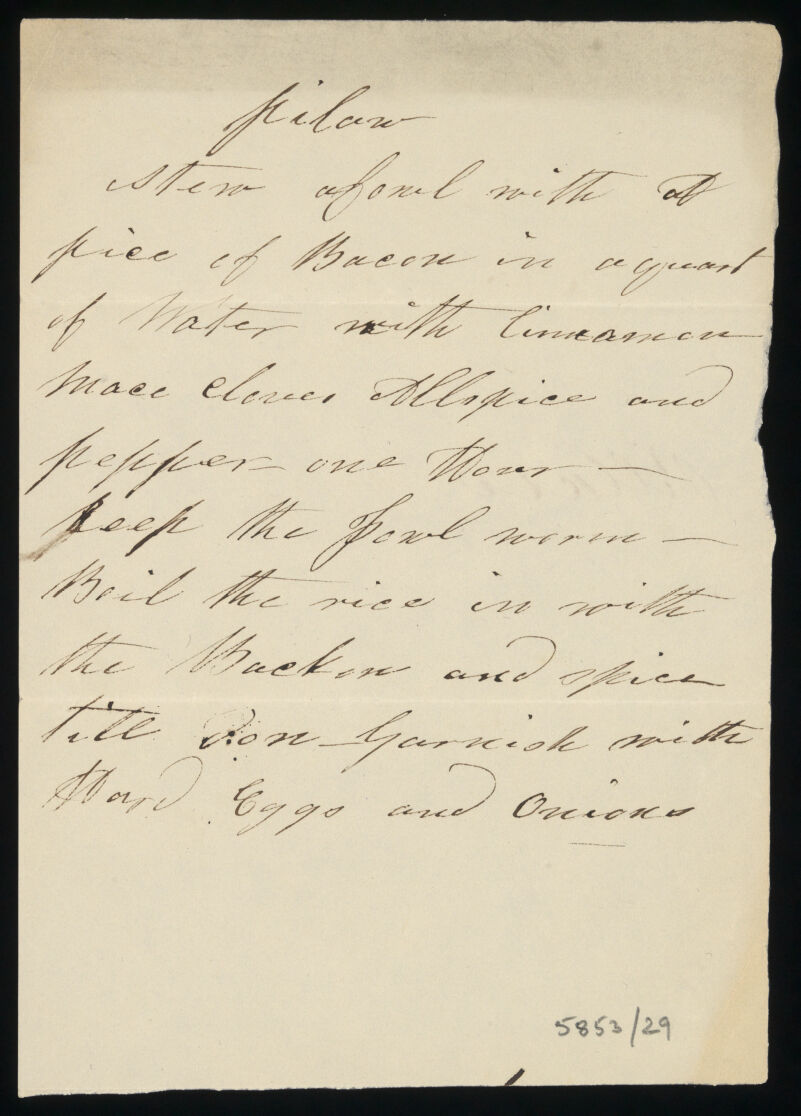 pilaw
stew a fowl with A
piec of Bacon in a quart
of Water with Cinnamon
Mace cloves Allspice and
pepper one Hour —
keep the fowl worm —
Boil the rice in with
the Backon and spice
till Don - Garnish with
Hard Eggs and Onions
5853/29